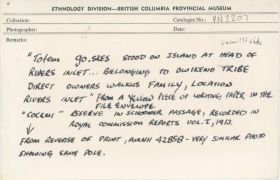 ETHNOLOGY DIVISION—BRITISH COLUMBIA PROVINCIAL MUSEUM
Collection:
Catalogue No.: PN2207
Photographer:
Date:
Remarks:
"Totem 90,5225 STOOD ON ISLAND AT HEAD OF
RIVERS INLET... BELONGING TO OWIKENO TRIBE
DIRECT OWNERS WALKUS FAMILY, LOCATION
RIVERS INLET" FROM A YELLOW PIECE OF WRITING PAPER IN THE
FILE ENVELOPE
RESERVE IN SCHOONER PASSAGE, RECORDED IN
ROYAL COMMISSION REPORTS VOL. I, 1913.
FROM REVERSE OF PRINT, AMNH 42858 – VERY SIMILAR PHOTO
SHOWING SAME POLE.